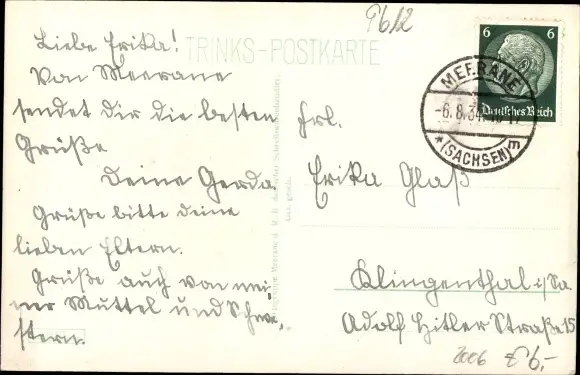 9612
TRINKS-POSTKARTE
Liebe Erika!
Von Meerane
sendet dir die besten
Grüße
Deine Gerda.
Grüße bitte deine
lieben Eltern.
Grüße auch von mei-
ner Muttel und Schwe
stern.
6 6
Deutsches Reich
MEERANE
-6.8.34
* (SACHSEN) E
Frl.
Erika Glaß
Klingenthal i/Sa.
Adolf Hitler Straße 15
2006 £6,-